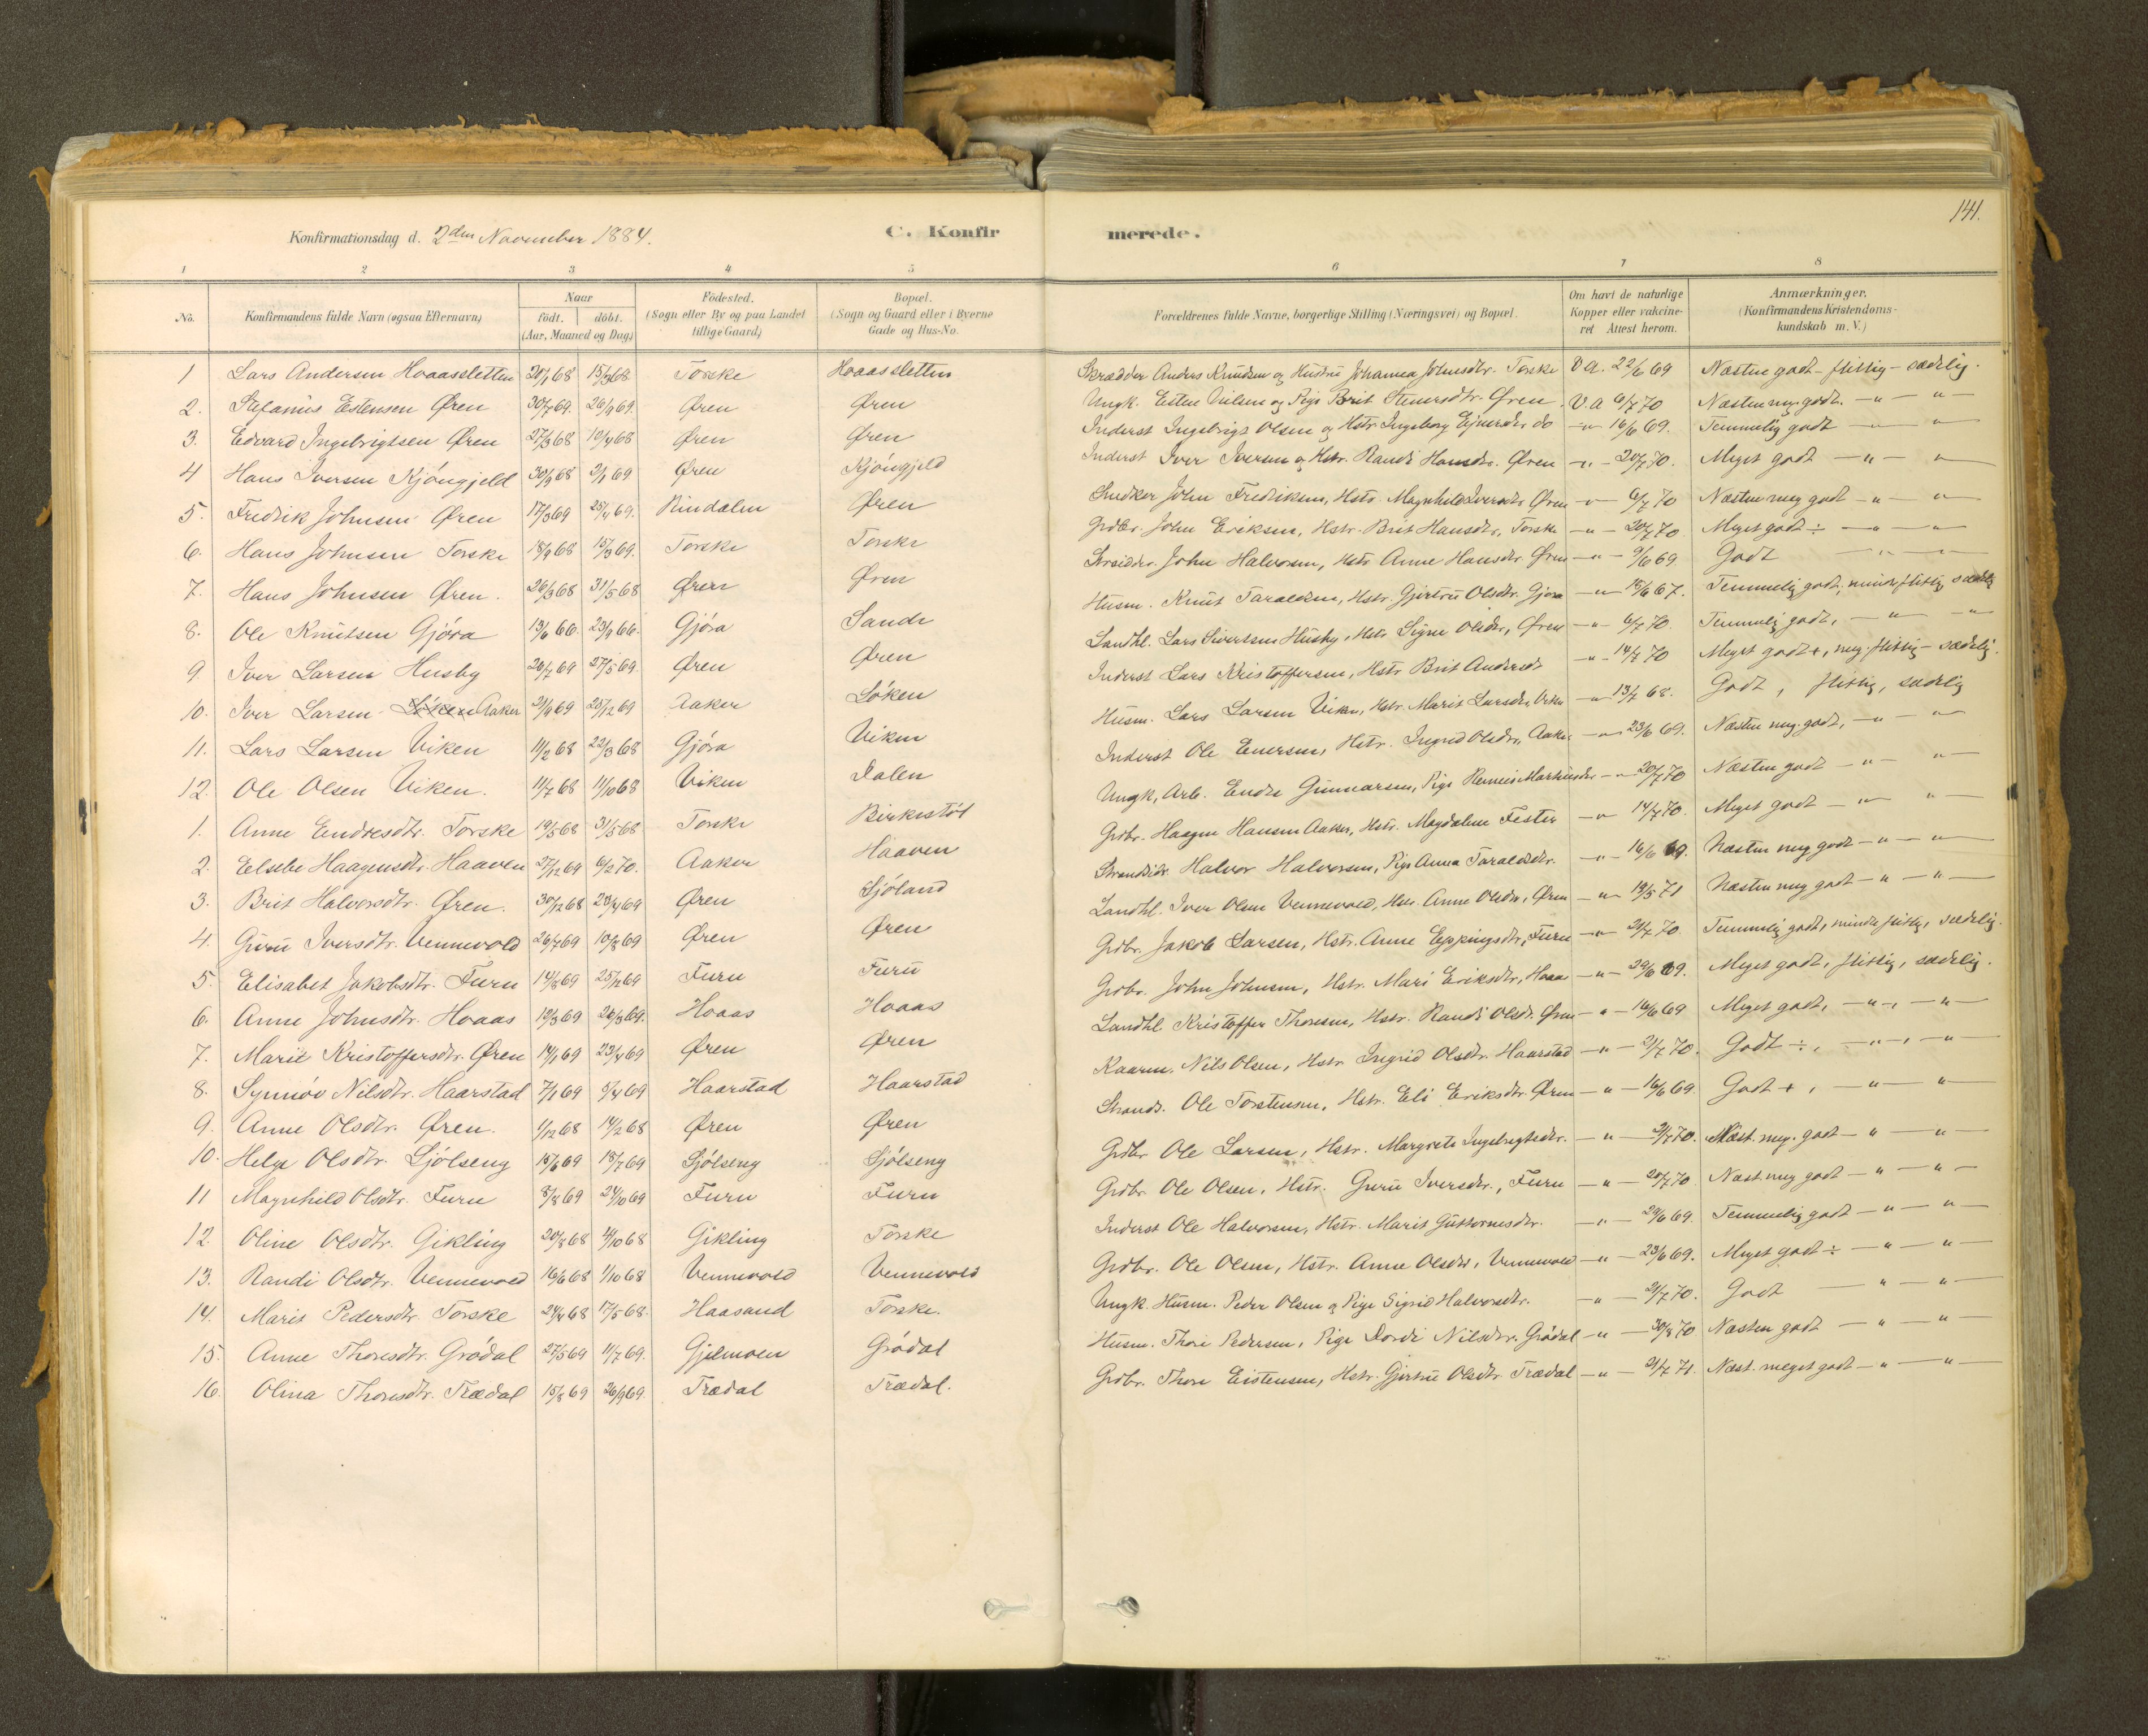 141.
Konfirmationsdag d. 2den November 1884. C. Konfirmerede.
1 2 3 4 5 6 7 8
No. Konfirmandens fulde Navn (ogsaa Efternavn) Naar födt. döbt. (Aar, Maaned og Dag) Födested. (Sogn eller By og paa Landet tillige Gaard) Bopæl. (Sogn og Gaard eller i Byerne Gade og Hus-No. Forældrenes fulde Navne, borgerlige Stilling (Næringsvei) og Bopæl. Om havt de naturlige Kopper eller vakcineret Attest herom. Anmærkninger. (Konfirmandens Kristendomskundskab m. V.)
1 Lars Andersen Hoaassletten 20/1 68 15/3 68 Torske Hoaassletten Skrædder Anders Knudsen og Hustru Johanna Johnsdtr. Torske V a. 22/6 69 Næsten godt - flittig - sædelig.
2. Stefanus Estensen Øren 30/7 69. 26/9 69. Øren Øren Ungk. Esten Nilsen og Pige Brit Steнersdtr. Øren V. a 6/7 70 Næsten meg. godt. - " - " -
3. Edvard Ingebrigtsen Øren 27/3 68 12/4 68 Øren Øren Inderst Ingebrigt Olsen og Hstr. Ingeborg Ejnersdr. do - " - 16/6 69. Temmelig godt - " -
4 Hans Iversen Kjöngjeld 30/9 68 2/1 69 Øren Kjöngjeld Inderst Iver Iversen og Hstr. Randi Hansdtr. Øren - " - 20/7 70. Meget godt - " - " -
5. Fredrik Johnsen Øren 17/3 69 25/4 69. Rindalen Øren Snedker John Fredriksen, Hstr. Magnhild Iversdtr Øren - " - 6/7 70 Næsten meg godt - " - " -
6. Hans Johnsen Torske 18/9 68 15/3 69. Torske Torske Grdbr. John Eriksen, Hstr. Brit Hansdtr, Torske - " - 20/7 70 Meget godt ÷ - " - " -
7. Hans Johnsen Øren. 26/3 68 31/5 68 Øren Øren John Halvorsen, Hstr Anne Hansdtr Øren - " - 9/6 69 Godt - " - " -
8. Ole Knutsen Gjöra 13/6 66. 23/9 66. Gjöra Sande Husm. Knut Taraldsen, Hstr. Gjertru Olsdtr. Gjöra - " - 67. Temmelig godt, mindre flittig sædelig
9. Iver Larsen Husby 20/4 69 27/5 69. Øren Øren Landhl. Lars Sivertsen Husby, Hstr. Signe Olsdtr, Øren - " - 6/7 70. Temmelig godt, - " - " -
10. Iver Larsen Löken Aaker 21/9 69 25/12 69 Aaker Löken Inderst Lars Kristoffersen, Hstr Brit Andersdtr - " - 14/7 70 Meget godt +, meg. flittig - sædelig.
11. Lars Larsen Viken 11/2 68 22/3 68 Gjöra Viken Husm. Lars Larsen Viken, Hstr. Marit Larsdtr, Viken - " - 13/7 68. Godt, flittig, sædelig
12. Ole Olsen Viken. 11/7 68 11/10 68 Viken Dalen Inderst Ole Enersen, Hstr. Ingrid Olsdtr, Aaker - " - 23/6 69. Næsten meg. godt, - " - " -
1. Anne Endresdtr. Torske 19/5 68 31/5 68 Torske Birkestöl Ungk, Arb. Endre Gunnarsen, Pige - " - 20/7 70 Næsten godt - " - " -
2. Elsebe Haagensdtr. Haaven 27/12 69 6/2 70. Aaker Haaven Grdbr. Haagen Hansen Aaker, Hstr. Magdalene Fester - " - 14/7 70. Meget godt - " - " -
3. Brit Halvorsdtr. Øren. 30/12 68 23/4 69 Øren Sjöland Strandsidr. Halvor Halvorsen, Pige Anna Taraldsdtr. - " - 16/6 69. Næsten meg godt - " - " -
4. Guru Iversdtr. Vennevold 26/7 69 10/8 69 Øren Øren Landhl. Iver Olsen Vennevold, Hstr. Anne Olsdtr, Øren - " - 19/5 71 Næsten meg godt - " - " -
5. Elisabet Jakobsdtr. Furu 14/8 69 25/12 69 Furu Furu Grdbr. Jakob Larsen, Hstr. Anne Eppingsdtr, Furu - " - 21/7 70. Temmelig godt, mindre flittig, sædelig.
6. Anne Johnsdtr. Hoaas 12/3 69 28/3 69. Hoaas Hoaas Grdbr. John Johnsen, Hstr. Mari Eriksdtr, Hoaas - " - 29/6 69. Meget godt, flittig, sædelig.
7. Marit Kristoffersdtr. Øren 14/1 69 23/4 69 Øren Øren Landhl Kristoffer Thoresen, Hstr. Randi Olsdtr. Øren - " - 16/6 69 Meget godt, - " - " -
8. Synnöv Nilsdtr. Haarstad 7/1 69 5/4 69 Haarstad Haarstad Kaarm. Nils Olsen, Hstr. Ingrid Olsdtr. Haarstad - " - 21/7 70. Godt ÷, - " - " -
9. Anne Olsdtr. Øren. 1/12 68 14/2 68 Øren Øren Strands. Ole Torstensen, Hstr. Eli Eriksdtr. Øren - " - 16/6 69. Godt +, - " - " -
10. Helga Olsdtr. Sjölseng 15/6 69 18/7 69 Sjölseng Sjölseng Grdbr Ole Larsen, Hstr. Margrete Ingebrigtsdtr. - " - 21/7 70. Næst. meg. godt - " - " -
11 Magnhild Olsdtr. Furu 8/8 69 24/10 69 Furu Furu Grdbr. Ole Olsen, Hstr. Guru Iversdtr., Furu - " - 20/7 70. Næst. meg godt - " - " -
12. Oline Olsdtr. Gikling 20/8 68 4/10 68 Gikling Torske Inderst Ole Halvorsen, Hstr. Marit Guttormsdtr. - " - 29/6 69. Temmelig godt - " - " -
13. Randi Olsdtr. Vennevold 16/6 68 1/10 68 Vennevold Vennevold Grdbr. Ole Olsen, Hstr. Anne Olsdtr, Vennevold - " - 23/6 69. Meget godt ÷ - " - " -
14. Marit Pedersdtr. Torske 24/4 68 17/5 68. Haasand Torske. Ungk. Husm. Peder Olsen og Pige Sigrid Halvorsdtr. - " - 21/7 70. Godt - " - " -
15. Anne Thoresdtr. Grödal 27/5 69 11/7 69. Gjelmoen Grödal Husm. Thore Pedersen, Pige Dordi Nilsdtr. Grödal - " - 30/8 70 Næsten godt - " - " -
16. Olina Thoresdtr. Trædal 15/8 69 26/9 69. Trædal Trædal. Grdbr. Thore Eistensen, Hstr. Gjertru Olsdtr Trædal - " - 21/7 71. Næst. meget godt - " - " -